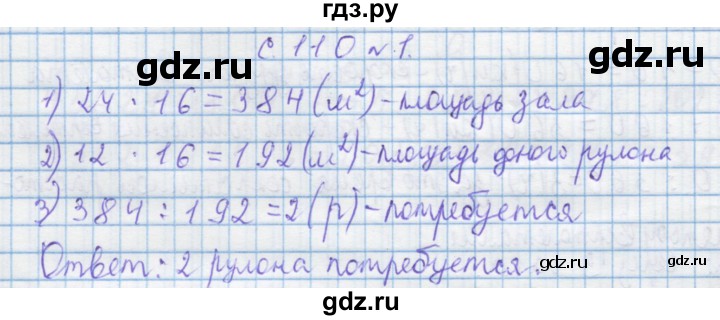 гдз.ру
gdz.ru gdz.ru
с. 110 № 1.
1) 24 · 16 = 384 (м²) - площадь зала
2) 12 · 16 = 192 (м²) - площадь одного рулона
3) 384 : 192 = 2 (р) - потребуется
Ответ: 2 рулона потребуется.
gdz.ru gdz.ru
gdz.ru